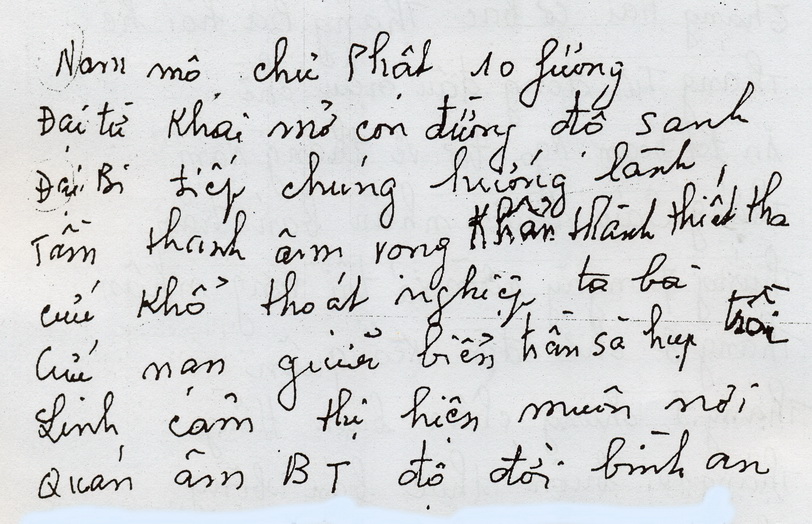 Nam mô chư Phật 10 fương
Đại từ Khai mở con đường độ sanh
Đại Bi tiếp chúng hướng lành,
Tầm thanh âm vọng Khẩn thành thiết tha
cứu Khổ thoát nghiệp ta bà
Cứu nạn giữa biển trần sa hụp trồi
Linh cảm thị hiện muôn nơi
Quán âm BT độ đời bình an